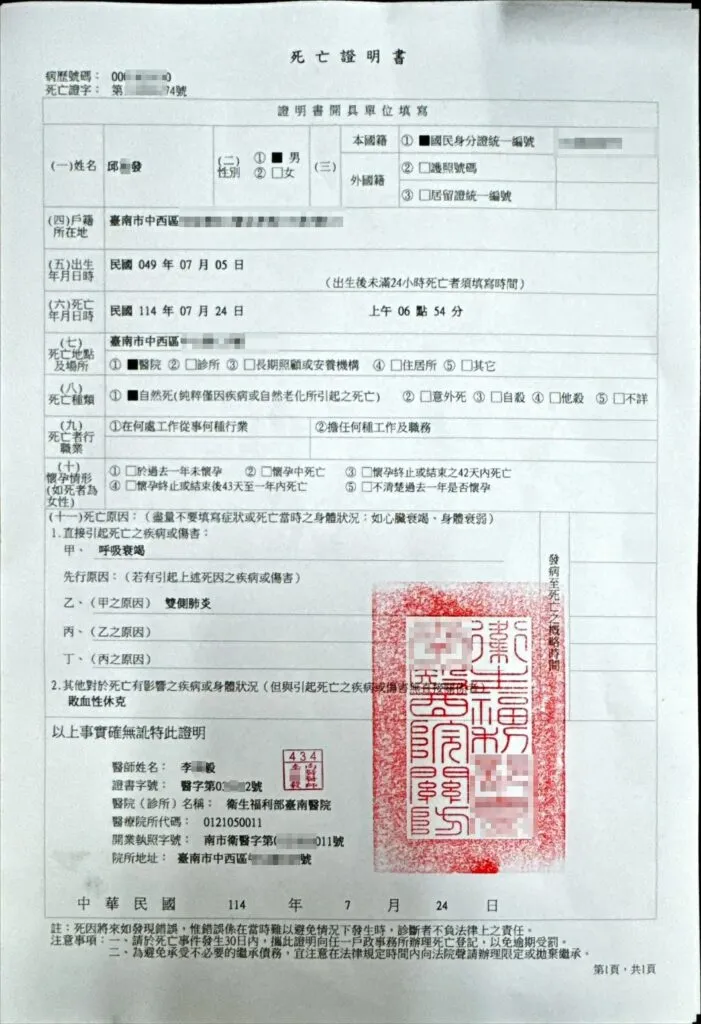 死亡證明書
病歷號碼： 00 0
死亡證字： 第 74號
證明書開具單位填寫
(一)姓名 邱 發 (二)性別 ① ■ 男 ② □女 (三) 本國籍 ① ■國民身分證統一編號
外國籍 ② □護照號碼
③ □居留證統一編號
(四)戶籍所在地 臺南市中西區
(五)出生年月日時 民國 049 年 07 月 05 日
(出生後未滿24小時死亡者須填寫時間)
(六)死亡年月日時 民國 114 年 07 月 24 日 上午 06 點 54 分
(七)死亡地點及場所 臺南市中西區
① ■醫院 ② □診所 ③ □長期照顧或安養機構 ④ □住居所 ⑤ □其它
(八)死亡種類 ① ■自然死(純粹僅因疾病或自然老化所引起之死亡) ② □意外死 ③ □自殺 ④ □他殺 ⑤ □不詳
(九)死亡者行職業 ①在何處工作從事何種行業 ②擔任何種工作及職務
(十)懷孕情形(如死者為女性) ① □於過去一年未懷孕 ② □懷孕中死亡 ③ □懷孕終止或結束之42天內死亡
④ □懷孕終止或結束後43天至一年內死亡 ⑤ □不清楚過去一年是否懷孕
(十一)死亡原因：(盡量不要填寫症狀或死亡當時之身體狀況：如心臟衰竭、身體衰弱)
1.直接引起死亡之疾病或傷害：
甲、 呼吸衰竭
發病至死亡之概略時間
先行原因：(若有引起上述死因之疾病或傷害)
乙、(甲之原因) 雙側肺炎
丙、(乙之原因)
丁、(丙之原因)
2.其他對於死亡有影響之疾病或身體狀況(但與引起死亡之疾病或傷害無直接
敗血性休克
以上事實確無訛特此證明
醫師姓名： 李 毅
434
證書字號： 醫字第0 2號
醫院(診所)名稱： 衛生福利部臺南醫院
醫療院所代碼： 0121050011
開業執照字號： 南市衛醫字第 011號
院所地址： 臺南市中西區 號
衛生福利
醫院關防
中華民國 114 年 7 月 24 日
註：死因將來如發現錯誤，惟錯誤係在當時難以避免情況下發生時，診斷者不負法律上之責任。
注意事項：一、請於死亡事件發生30日內，攜此證明向任一戶政事務所辦理死亡登記，以免逾期受罰。
二、為避免承受不必要的繼承債務，宜注意在法律規定時間內向法院聲請辦理限定或拋棄繼承。
第1頁，共1頁